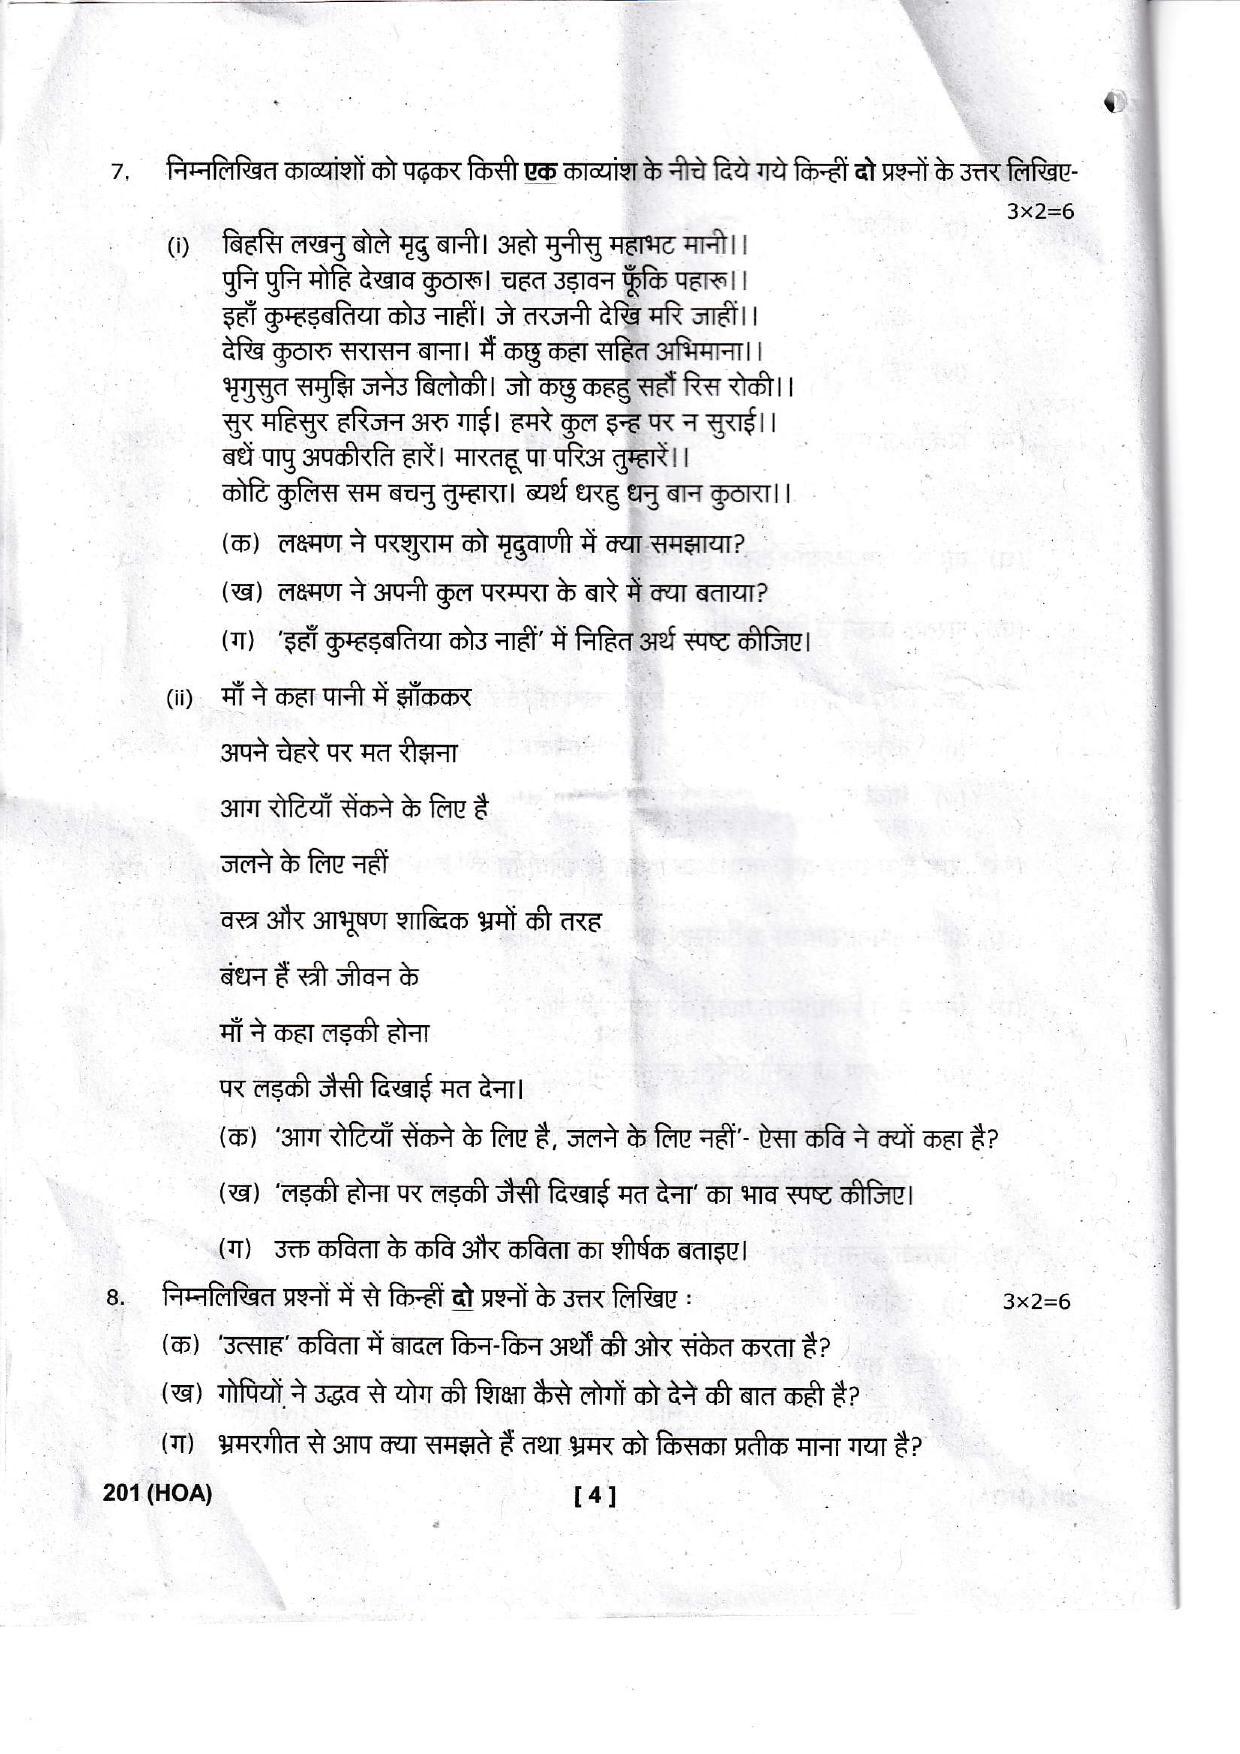 7. निम्नलिखित काव्यांशों को पढ़कर किसी एक काव्यांश के नीचे दिये गये किन्हीं दो प्रश्नों के उत्तर लिखिए-
3×2=6
(i) बिहसि लखनु बोले मृदु बानी। अहो मुनीसु महाभट मानी।।
पुनि पुनि मोहि देखाव कुठारू। चहत उड़ावन फूँकि पहारू।।
इहाँ कुम्हड़बतिया कोउ नाहीं। जे तरजनी देखि मरि जाहीं।।
देखि कुठारु सरासन बाना। मैं कछु कहा सहित अभिमाना।।
भृगुसुत समुझि जनेउ बिलोकी। जो कछु कहहु सहौं रिस रोकी।।
सुर महिसुर हरिजन अरु गाई। हमरे कुल इन्ह पर न सुराई।।
बधें पापु अपकीरति हारें। मारतहू पा परिअ तुम्हारें।।
कोटि कुलिस सम बचनु तुम्हारा। ब्यर्थ धरहु धनु बान कुठारा।।
(क) लक्ष्मण ने परशुराम को मृदुवाणी में क्या समझाया?
(ख) लक्ष्मण ने अपनी कुल परम्परा के बारे में क्या बताया?
(ग) 'इहाँ कुम्हड़बतिया कोउ नाहीं' में निहित अर्थ स्पष्ट कीजिए।
(ii) माँ ने कहा पानी में झाँककर
अपने चेहरे पर मत रीझना
आग रोटियाँ सेंकने के लिए है
जलने के लिए नहीं
वस्त्र और आभूषण शाब्दिक भ्रमों की तरह
बंधन हैं स्त्री जीवन के
माँ ने कहा लड़की होना
पर लड़की जैसी दिखाई मत देना।
(क) 'आग रोटियाँ सेंकने के लिए है, जलने के लिए नहीं'- ऐसा कवि ने क्यों कहा है?
(ख) 'लड़की होना पर लड़की जैसी दिखाई मत देना' का भाव स्पष्ट कीजिए।
(ग) उक्त कविता के कवि और कविता का शीर्षक बताइए।
8. निम्नलिखित प्रश्नों में से किन्हीं दो प्रश्नों के उत्तर लिखिए : 3×2=6
(क) 'उत्साह' कविता में बादल किन-किन अर्थों की ओर संकेत करता है?
(ख) गोपियों ने उद्धव से योग की शिक्षा कैसे लोगों को देने की बात कही है?
(ग) भ्रमरगीत से आप क्या समझते हैं तथा भ्रमर को किसका प्रतीक माना गया है?
201 (HOA) [ 4 ]